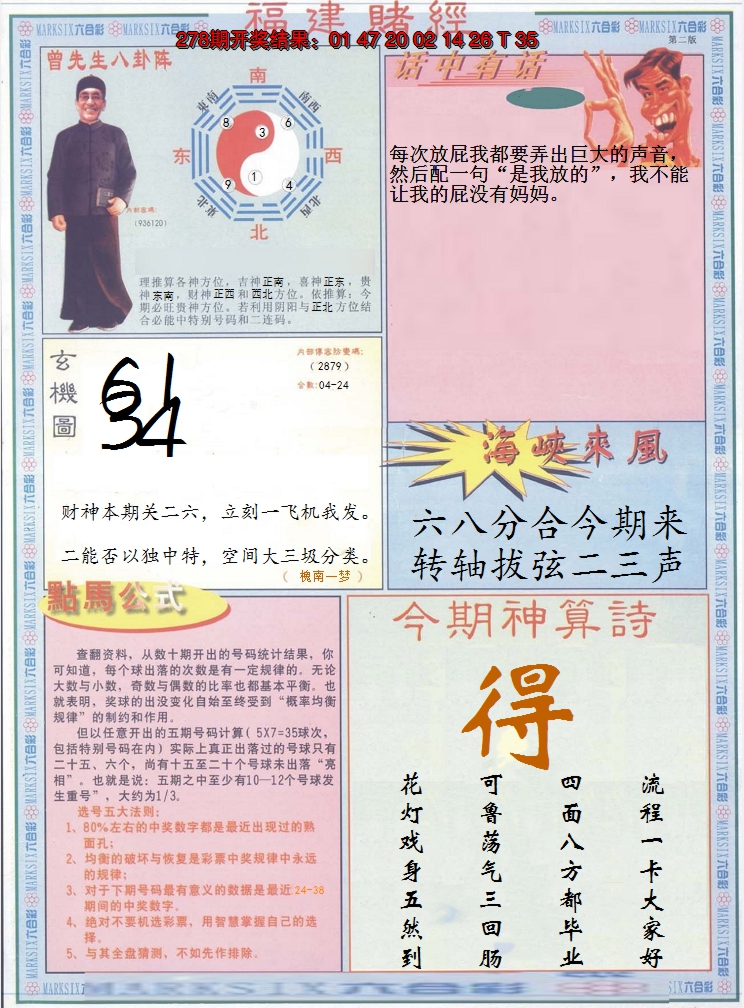 福建賭經
278期开奖结果：01 47 20 02 14 26 T 35
第二版
曾先生八卦阵
南
東南
南西
8
3
6
东
西
9
1
4
東北
西北
北
(936120)
理推算各神方位，吉神正南，喜神正东，贵
神东南，财神正西和西北方位。依推算：今
期必旺贵神方位。若利用阴阳与正北方位结
合必能中特别号码和二连码。
话中有话
每次放屁我都要弄出巨大的声音，
然后配一句“是我放的”，我不能
让我的屁没有妈妈。
玄機圖
61
34
(2879)
合数:04-24
财神本期关二六，立刻一飞机我发。
二能否以独中特，空间大三圾分类。
（槐南一梦）
海峽來風
六八分合今期来
转轴拔弦二三声
點馬公式
查翻资料，从数十期开出的号码统计结果，你
可知道，每个球出落的次数是有一定规律的。无论
大数与小数，奇数与偶数的比率也都基本平衡。也
就表明，奖球的出没变化自始至终受到“概率均衡
规律”的制约和作用。
但以任意开出的五期号码计算（5X7=35球次，
包括特别号码在内）实际上真正出落过的号球只有
二十五、六个，尚有十五至二十个号球未出落“亮
相”。也就是说：五期之中至少有10—12个号球发
生重号”，大约为1/3。
选号五大法则：
1、80%左右的中奖数字都是最近出现过的熟
面孔；
2、均衡的破坏与恢复是彩票中奖规律中永远
的规律；
3、对于下期号码最有意义的数据是最近24-38
期间的中奖数字。
4、绝对不要机选彩票，用智慧掌握自己的选
择。
5、与其全盘猜测，不如先作排除。
今期神算詩
得
流程一卡大家好
四面八方都毕业
可鲁荡气三回肠
花灯戏身五然到
MARKSIX六合彩